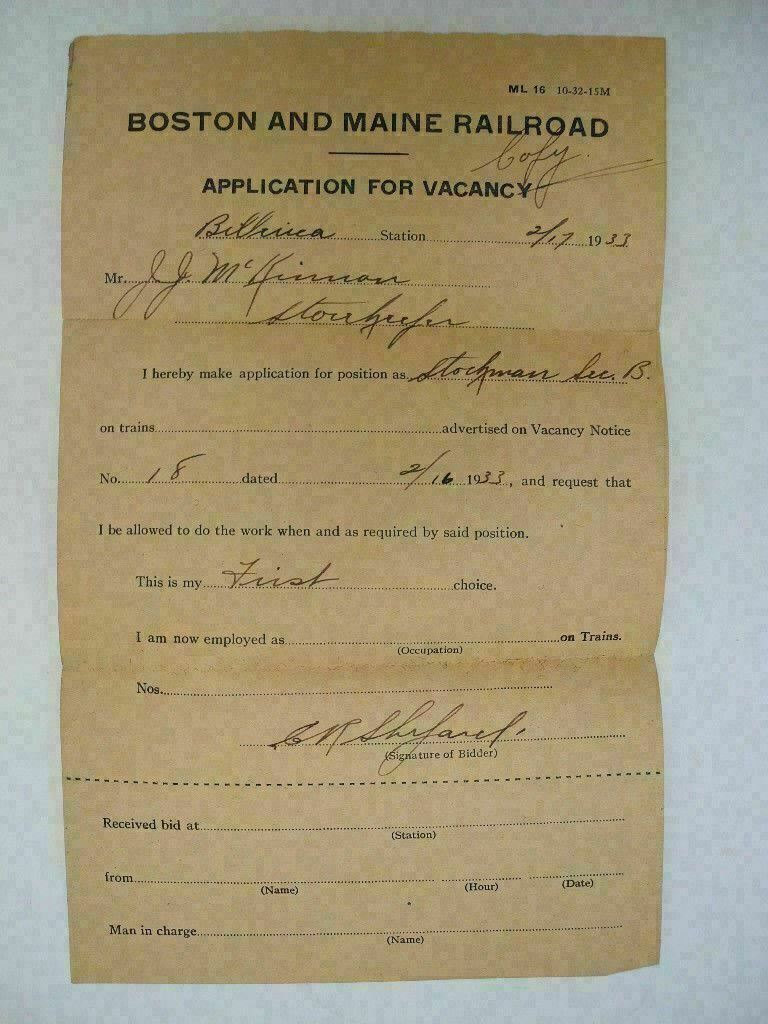 ML 16 10-32-15M
BOSTON AND MAINE RAILROAD
Copy.
APPLICATION FOR VACANCY
Billerica Station 2/17 1933
Mr. J. J. McKinnon
Storekeeper
I hereby make application for position as Stockman Sec. B.
on trains advertised on Vacancy Notice
No. 18 dated 2/16 1933, and request that
I be allowed to do the work when and as required by said position.
This is my First choice.
I am now employed as on Trains.
(Occupation)
Nos.
C R Shepard.
(Signature of Bidder)
Received bid at
(Station)
from
(Name) (Hour) (Date)
Man in charge
(Name)